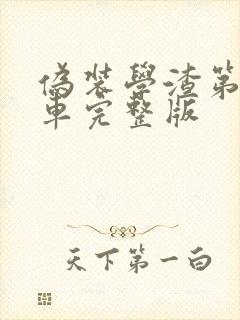 偽装學渣第
車完整版
天下第一白